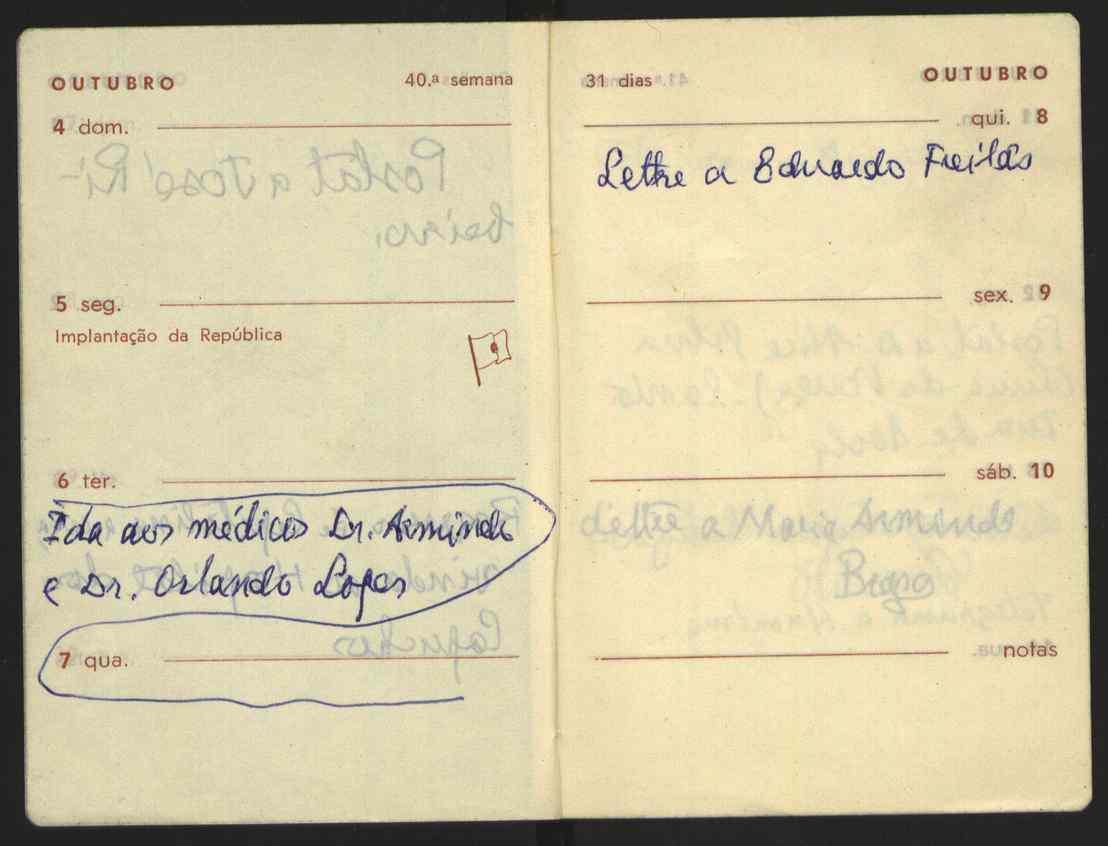 OUTUBRO 40.ª semana
4 dom.
5 seg.
Implantação da República
6 ter.
Ida aos médicos Dr. Armindo
e Dr. Orlando Lopes
7 qua.
31 dias OUTUBRO
qui. 8
Lettre a Eduardo Freitas
sex. 9
sáb. 10
Lettre a Maria Armanda
notas